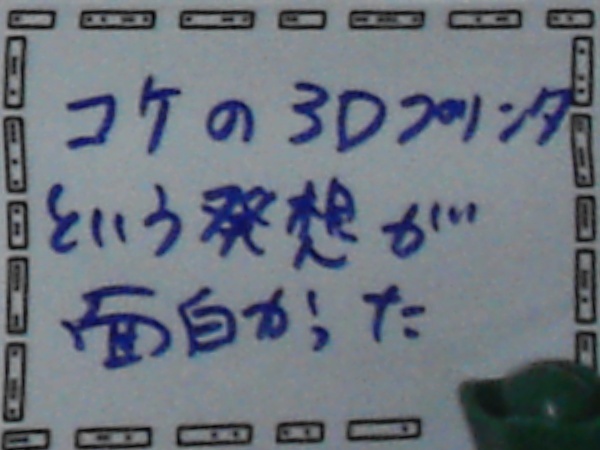 コケの3Dプリンタ
という発想が
面白かった